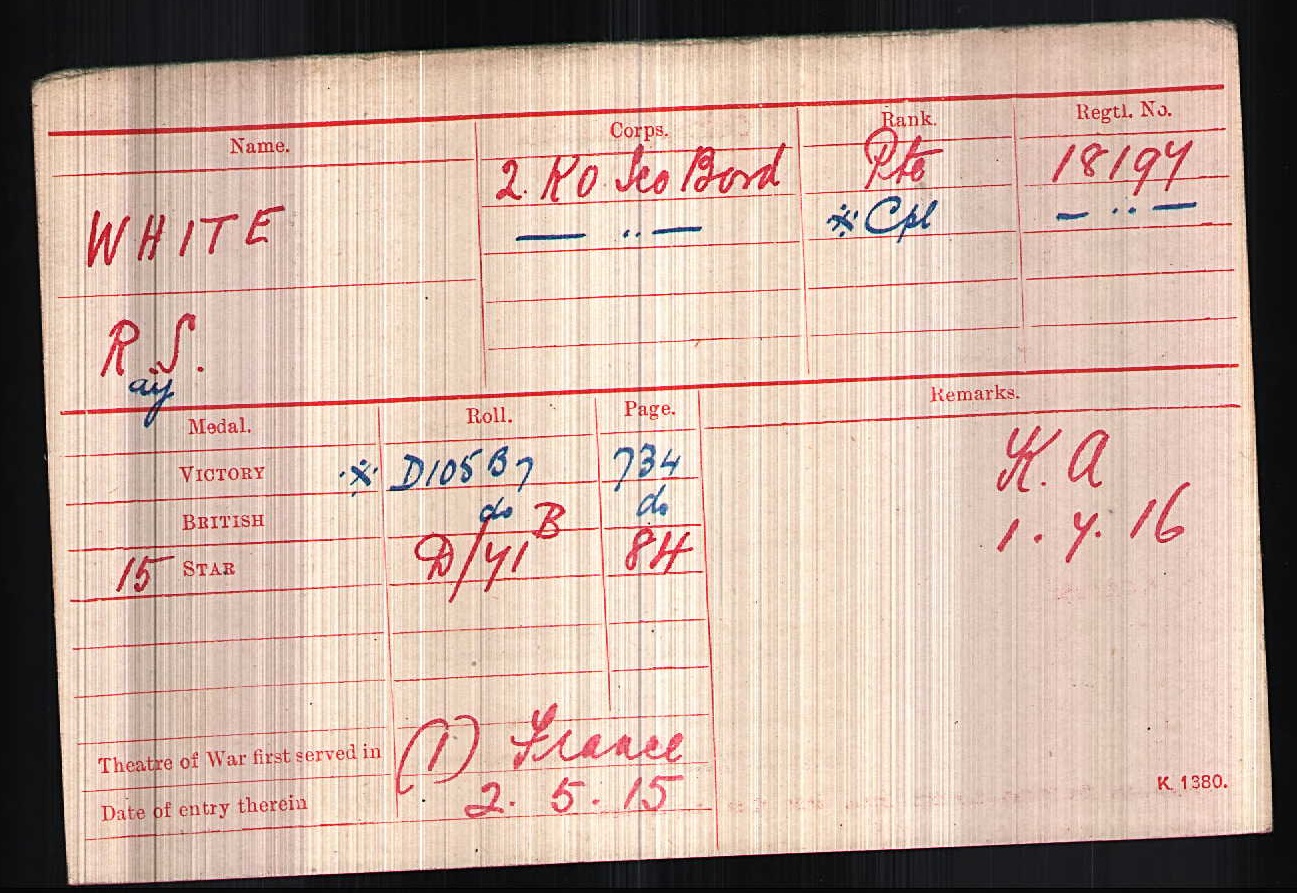 Name. Corps. Rank. Regtl. No.
WHITE 2. KO Sco Bord Pte 18197
— ·· — ※ Cpl — ·· —
R.S.
ay
Medal. Roll. Page. Remarks.
VICTORY ※ D105B7 734 K.A
BRITISH do do 1.7.16
15 STAR D/71B 84
Theatre of War first served in (1) France
Date of entry therein 2.5.15
K. 1380.